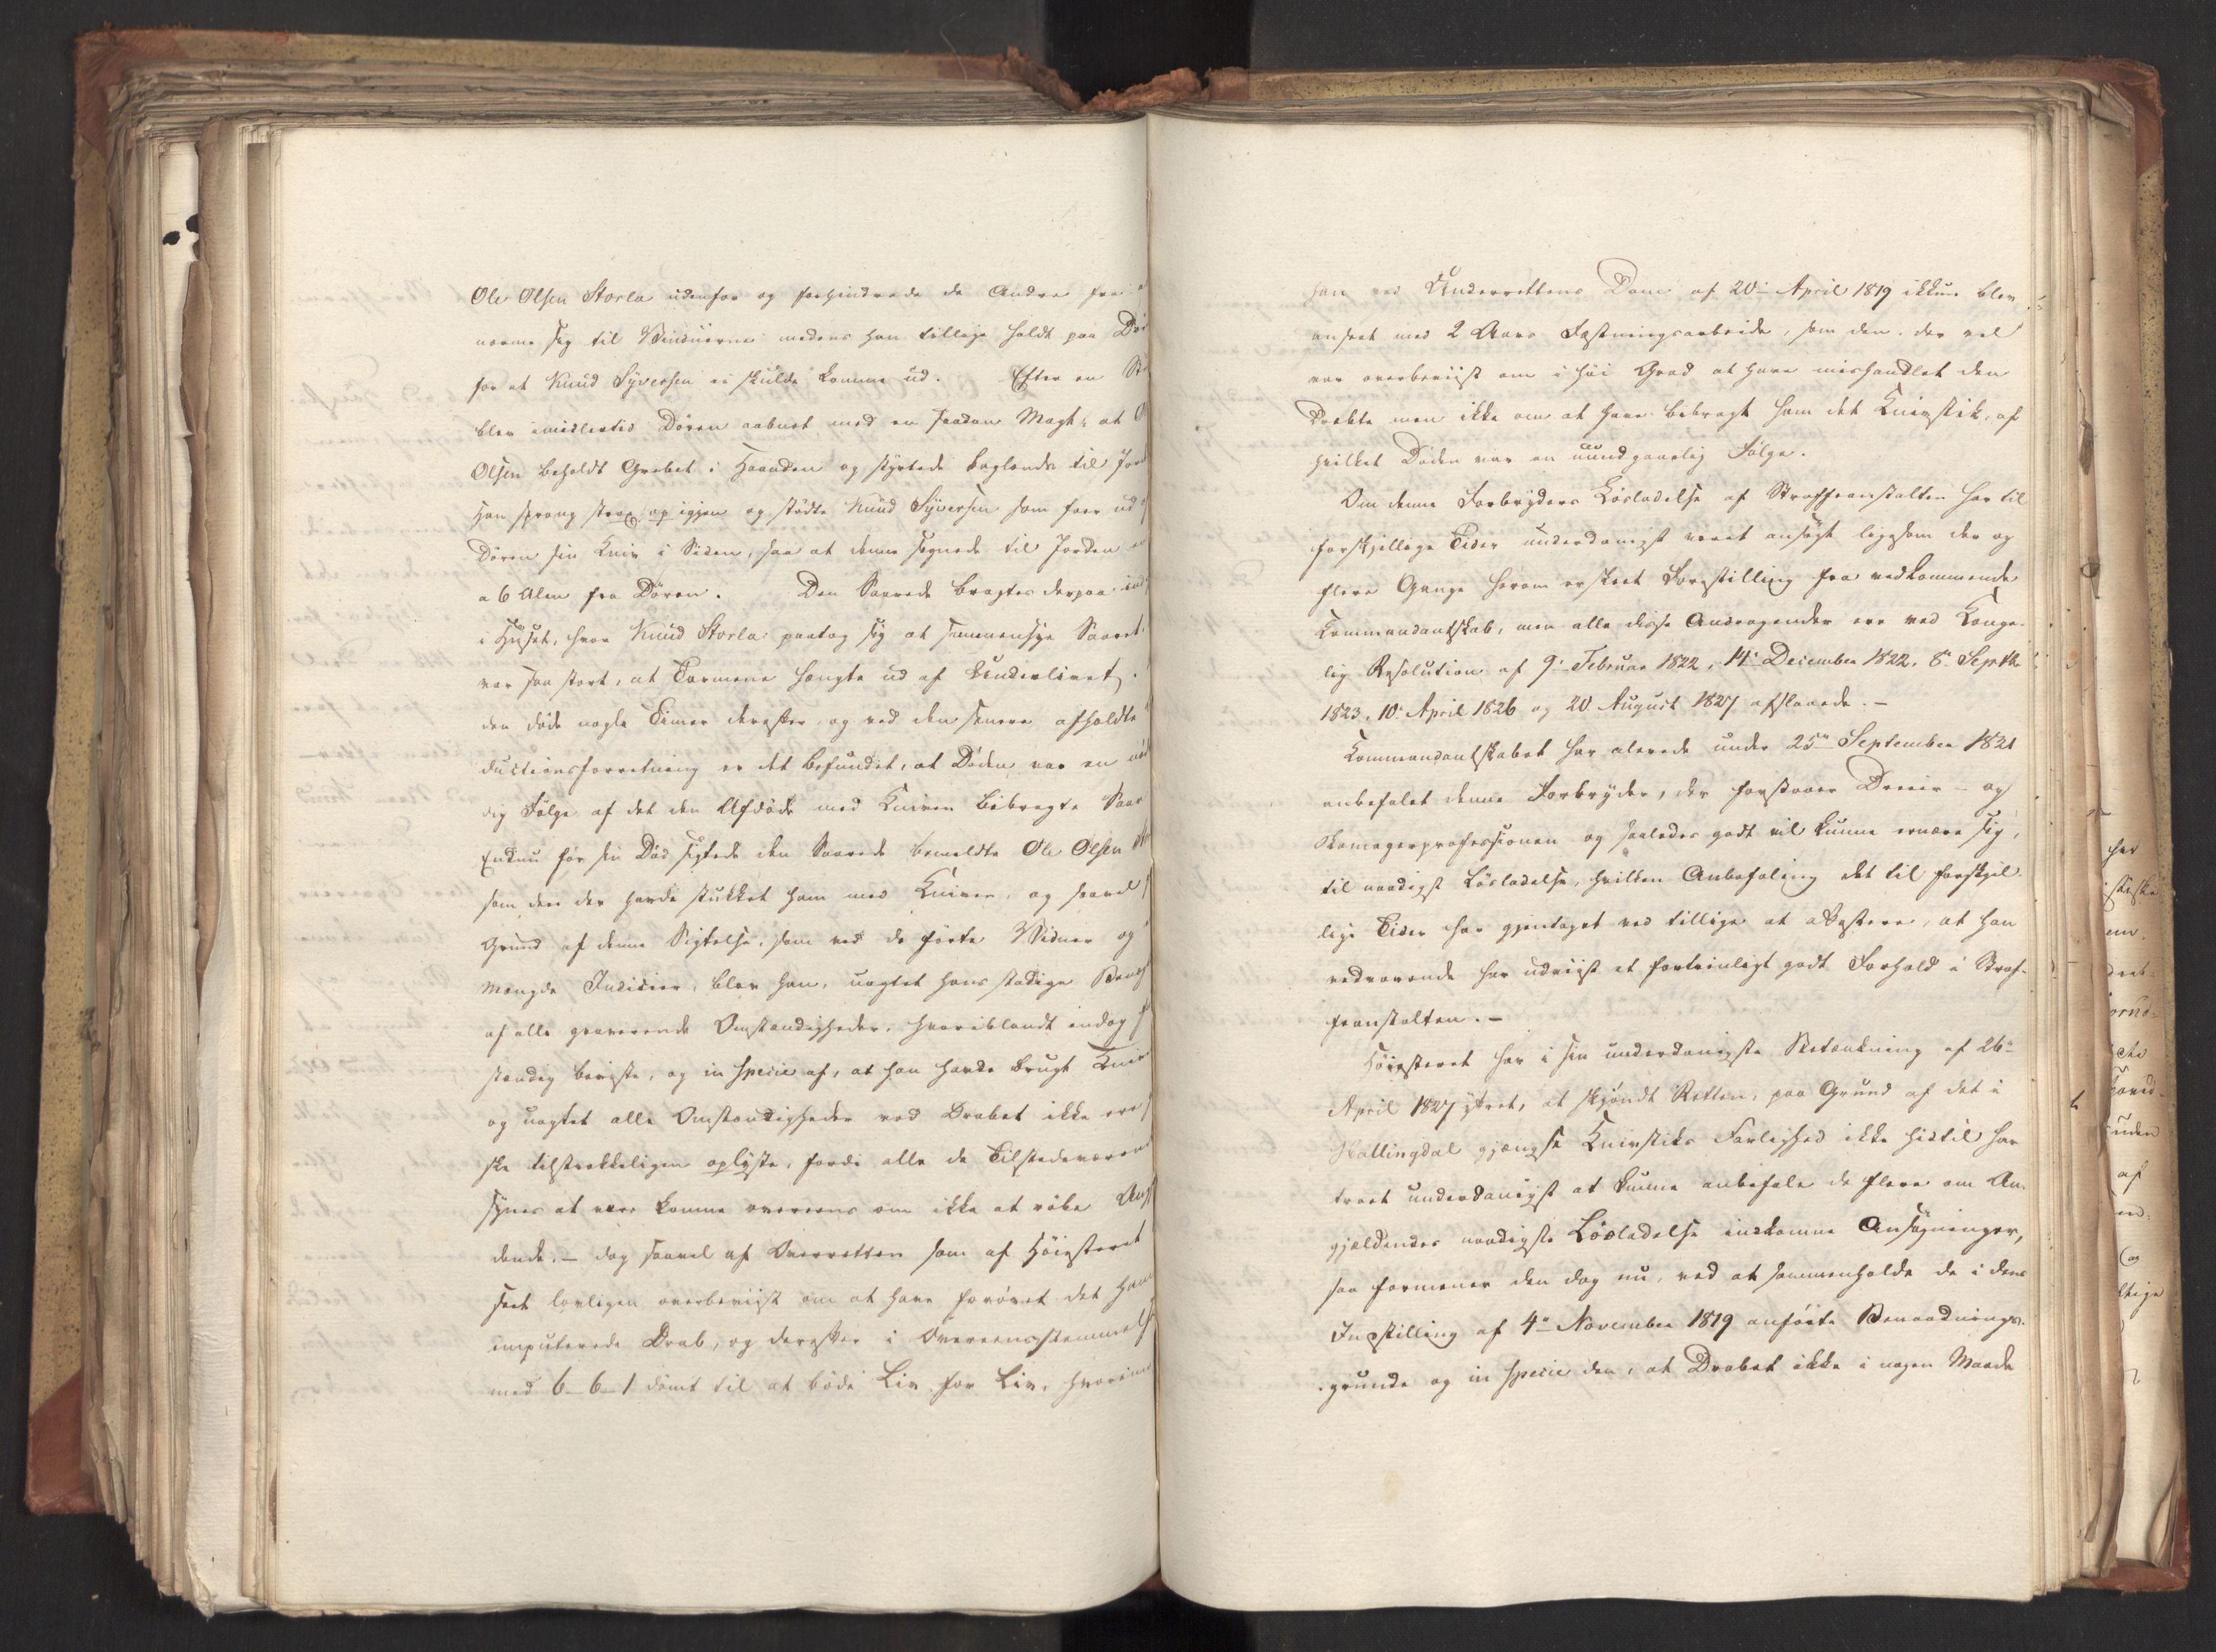 Ole Olsen Storla udenfor og forhindrede de Andre fra
nærme sig til Vinduerne medens han tillige holdt paa Dör
for at Knud Syversen ei skulde komme ud. Efter en
blev imidlertid Dören aabnet med en saadan Magt, at
Olsen beholdt Grebet i Haanden og styrtede baglænds til Jord
Han sprang strax op igjen og stödte Knud Syversen som foer ud
Dören sin Kniv i Siden, saa at denne segnede til Jorden
a 6 Alen fra Dören. Den Saarede bragtes derpaa ind
i Huset, hvor Knud Storla paatog sig at sammensye Saaret,
var saa stort, at Tarmene hængte ud af Underlivet.
den döde nogle Timer derefter og ved den senere afholdte
ductionsforretning er det befundet, at Döden var en
dig Fölge af det den Afdöde med Kniven bibragte Saar
Endnu för sin Död sigtede den Saarede bemeldte Ole Olsen
som den der havde stukket ham med Kniven, og saavel
Grund af denne Sigtelse, som ved de förte Vidner og
Mængde Indicier, blev han, uagtet hans stadige
af alle graverende Omstændigheder, hvoriblandt endog
stændig beviste, og in specie af, at han havde brugt Kniv
og uagtet alle Omstændigheder ved Drabet ikke ere
ske tilstrækkeligen oplyste, fordi alle de Tilstedeværen
synes at være komne overeens om ikke at röbe
dende, – dog saavel af Overretten som af Höiesteret
seet lovligen overbeviist om at have forövet det ham
imputerede Drab, og derefter i Overeensstemmelse
med 6-6-1 dömt til at böde Liv for Liv, hvorimod
han ved Underrettens Dom af 20de April 1819 ikkun blev
anseet med 2 Aars Fæstningsarbeide, som den, der vel
var overbeviist om i höi Grad at have mishandlet den
Dræbte men ikke om at have bibragt ham det Knivstik, af
hvilket Döden var en uundgaaelig Fölge.
Om denne Forbryders Lösladelse af Straffeanstalten har til
forskjellige Tider underdanigst været ansögt ligesom der og
flere Gange herom er skeet Forestilling fra vedkommende
Kommandantskab, men alle disse Andragender ere ved Konge-
lig Resolution af 9de Februar 1822, 14de December 1822, 8de Septbr
1823, 10de April 1826 og 20 August 1827 afslaaede. –
Kommandantskabet har alerede under 25de September 1821
anbefalet denne Forbryder, der forstaaer Dreier- og
Skomagerprofessionen og saaledes godt vil kunne ernære sig,
til naadigst Lösladelse, hvilken Anbefaling det til forskjel-
lige Tider har gjentaget ved tillige at attestere, at han
vedvarende har udviist et fortrinligt godt Forhold i Straf-
feanstalten. –
Höiesteret har i sin underdanigste Betænkning af 26de
April 1827 ytret, at skjöndt Retten, paa Grund af det i
Hallingdal gjængse Knivstiks Farlighed ikke hidtil har
troet underdanigst at kunne anbefale de flere om An-
gjældendes naadigste Lösladelse indkomne Ansögninger,
saa formener den dog nu, ved at sammenholde de i dens
Indstilling af 4de November 1819 anförte Benaadnings-
grunde og in specie den, at Drabet ikke i nogen Maade